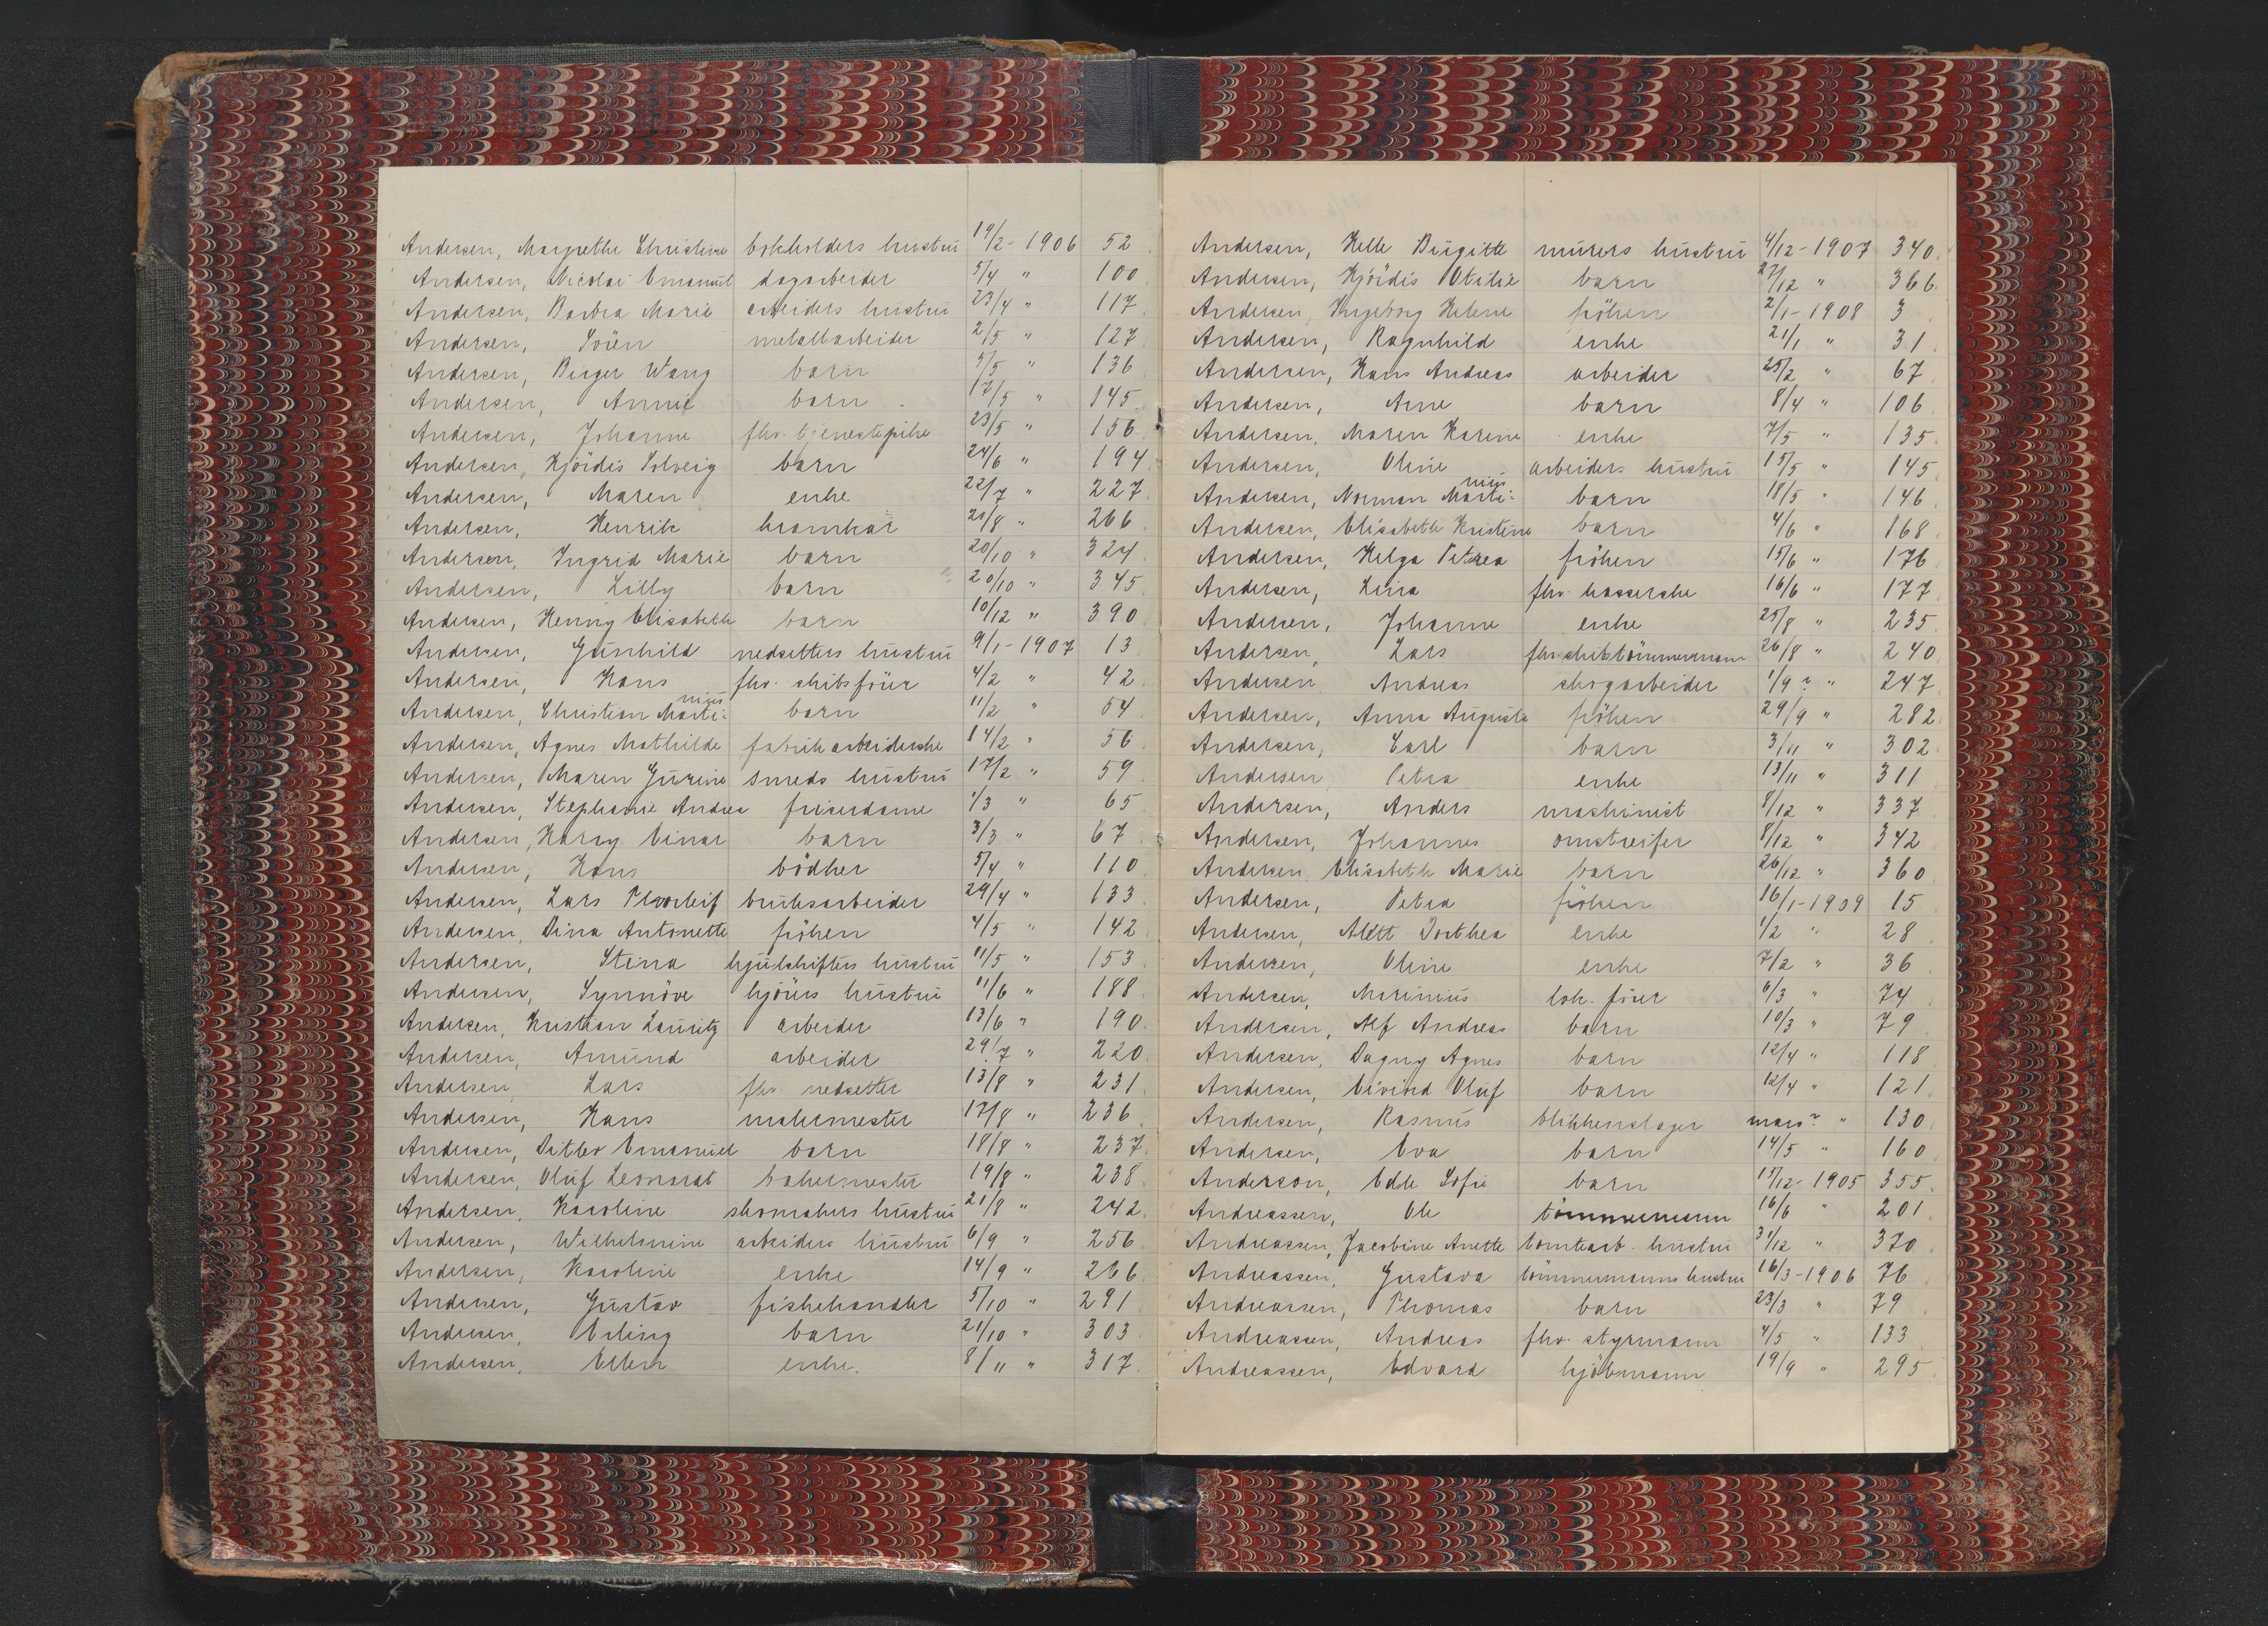 Andersen, Margrethe Christine bokholders hustru 19/2 - 1906 52
Andersen, Nicolai Emanuel dagarbeider 5/4 " 100
Andersen, Barbra Marie arbeiders hustru 23/4 " 117
Andersen, Sören metallarbeider 2/5 " 127
Andersen, Birger Wang barn 5/5 " 136
Andersen, Annie barn 17/5 " 145
Andersen, Johanne fhv. tjenestepike 23/5 " 156
Andersen, Hjördis Solveig barn 24/6 " 194
Andersen, Maren enke 22/7 " 227
Andersen, Henrik kramkar 21/8 " 266
Andersen, Ingrid Marie barn 20/10 " 324
Andersen, Lilly barn 20/10 " 345
Andersen, Henny Elisabeth barn 10/12 " 390
Andersen, Gunhild nedsetters hustru 9/1 - 1907 13
Andersen, Hans fhv. skibsförer 4/2 " 42
Andersen, Christian Marti-nius barn 11/2 " 54
Andersen, Agnes Mathilde fabrikarbeiderske 14/2 " 56
Andersen, Maren Gurine smeds hustru 17/2 " 59
Andersen, Stephanie Andrea friserdame 1/3 " 65
Andersen, Harry Einar barn 3/3 " 67
Andersen, Hans bödker 5/4 " 110
Andersen, Lars Thorleif bruksarbeider 29/4 " 133
Andersen, Dina Antonette fröken 4/5 " 142
Andersen, Stina hjulskifters hustru 11/5 " 153
Andersen, Synnöve kjörers hustru 11/6 " 188
Andersen, Kristian Lauritz arbeider 13/6 " 190
Andersen, Amund arbeider 29/7 " 220
Andersen, Lars fhv. nedsetter 13/8 " 231
Andersen, Hans malermester 17/8 " 236
Andersen, Ditlev Emanuel barn 18/8 " 237
Andersen, Oluf Leonard bakermester 19/8 " 238
Andersen, Karoline skomakers hustru 21/8 " 242
Andersen, Wilhelmine arbeiders hustru 6/9 " 256
Andersen, Karoline enke 14/9 " 266
Andersen, Gustav fiskehandler 5/10 " 291
Andersen, Erling barn 21/10 " 303
Andersen, Ellen enke. 8/11 " 317
Andersen, Helle Birgitte murers hustru 4/12 - 1907 340
Andersen, Hjördis Otilie barn 27/12 " 366
Andersen, Ingeborg Helene fröken 2/1 - 1908 3
Andersen, Ragnhild enke 21/1 " 31
Andersen, Hans Andreas arbeider 25/2 " 67
Andersen, Arne barn 8/4 " 106
Andersen, Maren Karine enke 7/5 " 135
Andersen, Oline arbeiders hustru 15/5 " 145
Andersen, Norman Marti-nius barn 18/5 " 146
Andersen, Elisabeth Kristine barn 4/6 " 168
Andersen, Helga Petrea fröken 15/6 " 176
Andersen, Lina fhv. kassererske 16/6 " 177
Andersen, Johanne enke 25/8 " 235
Andersen, Lars fhv. skibstömmermann 26/8 " 240
Andersen, Andreas skogarbeider 1/9 ? " 247
Andersen, Anna Augusta fröken 29/9 " 282
Andersen, Carl barn 3/11 " 302
Andersen, Petra enke 13/11 " 311
Andersen, Anders maskinist 8/12 " 337
Andersen, Johannes omstreifer 8/12 " 342
Andersen, Elisabeth Marie barn 26/12 " 360
Andersen, Petra fröken 16/1 - 1909 15
Andersen, Alett Dorthea enke 1/2 " 28
Andersen, Oline enke 7/2 " 36
Andersen, Marinius lok. förer 6/3 " 74
Andersen, Alf Andreas barn 10/3 " 79
Andersen, Dagny Agnes barn 12/4 " 118
Andersen, Eivind Oluf barn 12/4 " 121
Andersen, Rasmus blikkenslager mars? " 130
Andersen, Eva barn 14/5 " 160
Anderson, Edle Sofie barn 15/12 - 1905 355
Andreassen, Ole tömmermann 16/6 " 201
Andreassen, Jacobine Anette tomtearb. hustru 31/12 " 370
Andreassen, Gustava tömmermanns hustru 16/3 - 1906 76
Andreassen, Thomas barn 23/3 " 79
Andreassen, Andreas fhv. styrmann 4/5 " 133
Andreassen, Edvard kjöbmann 19/9 " 295